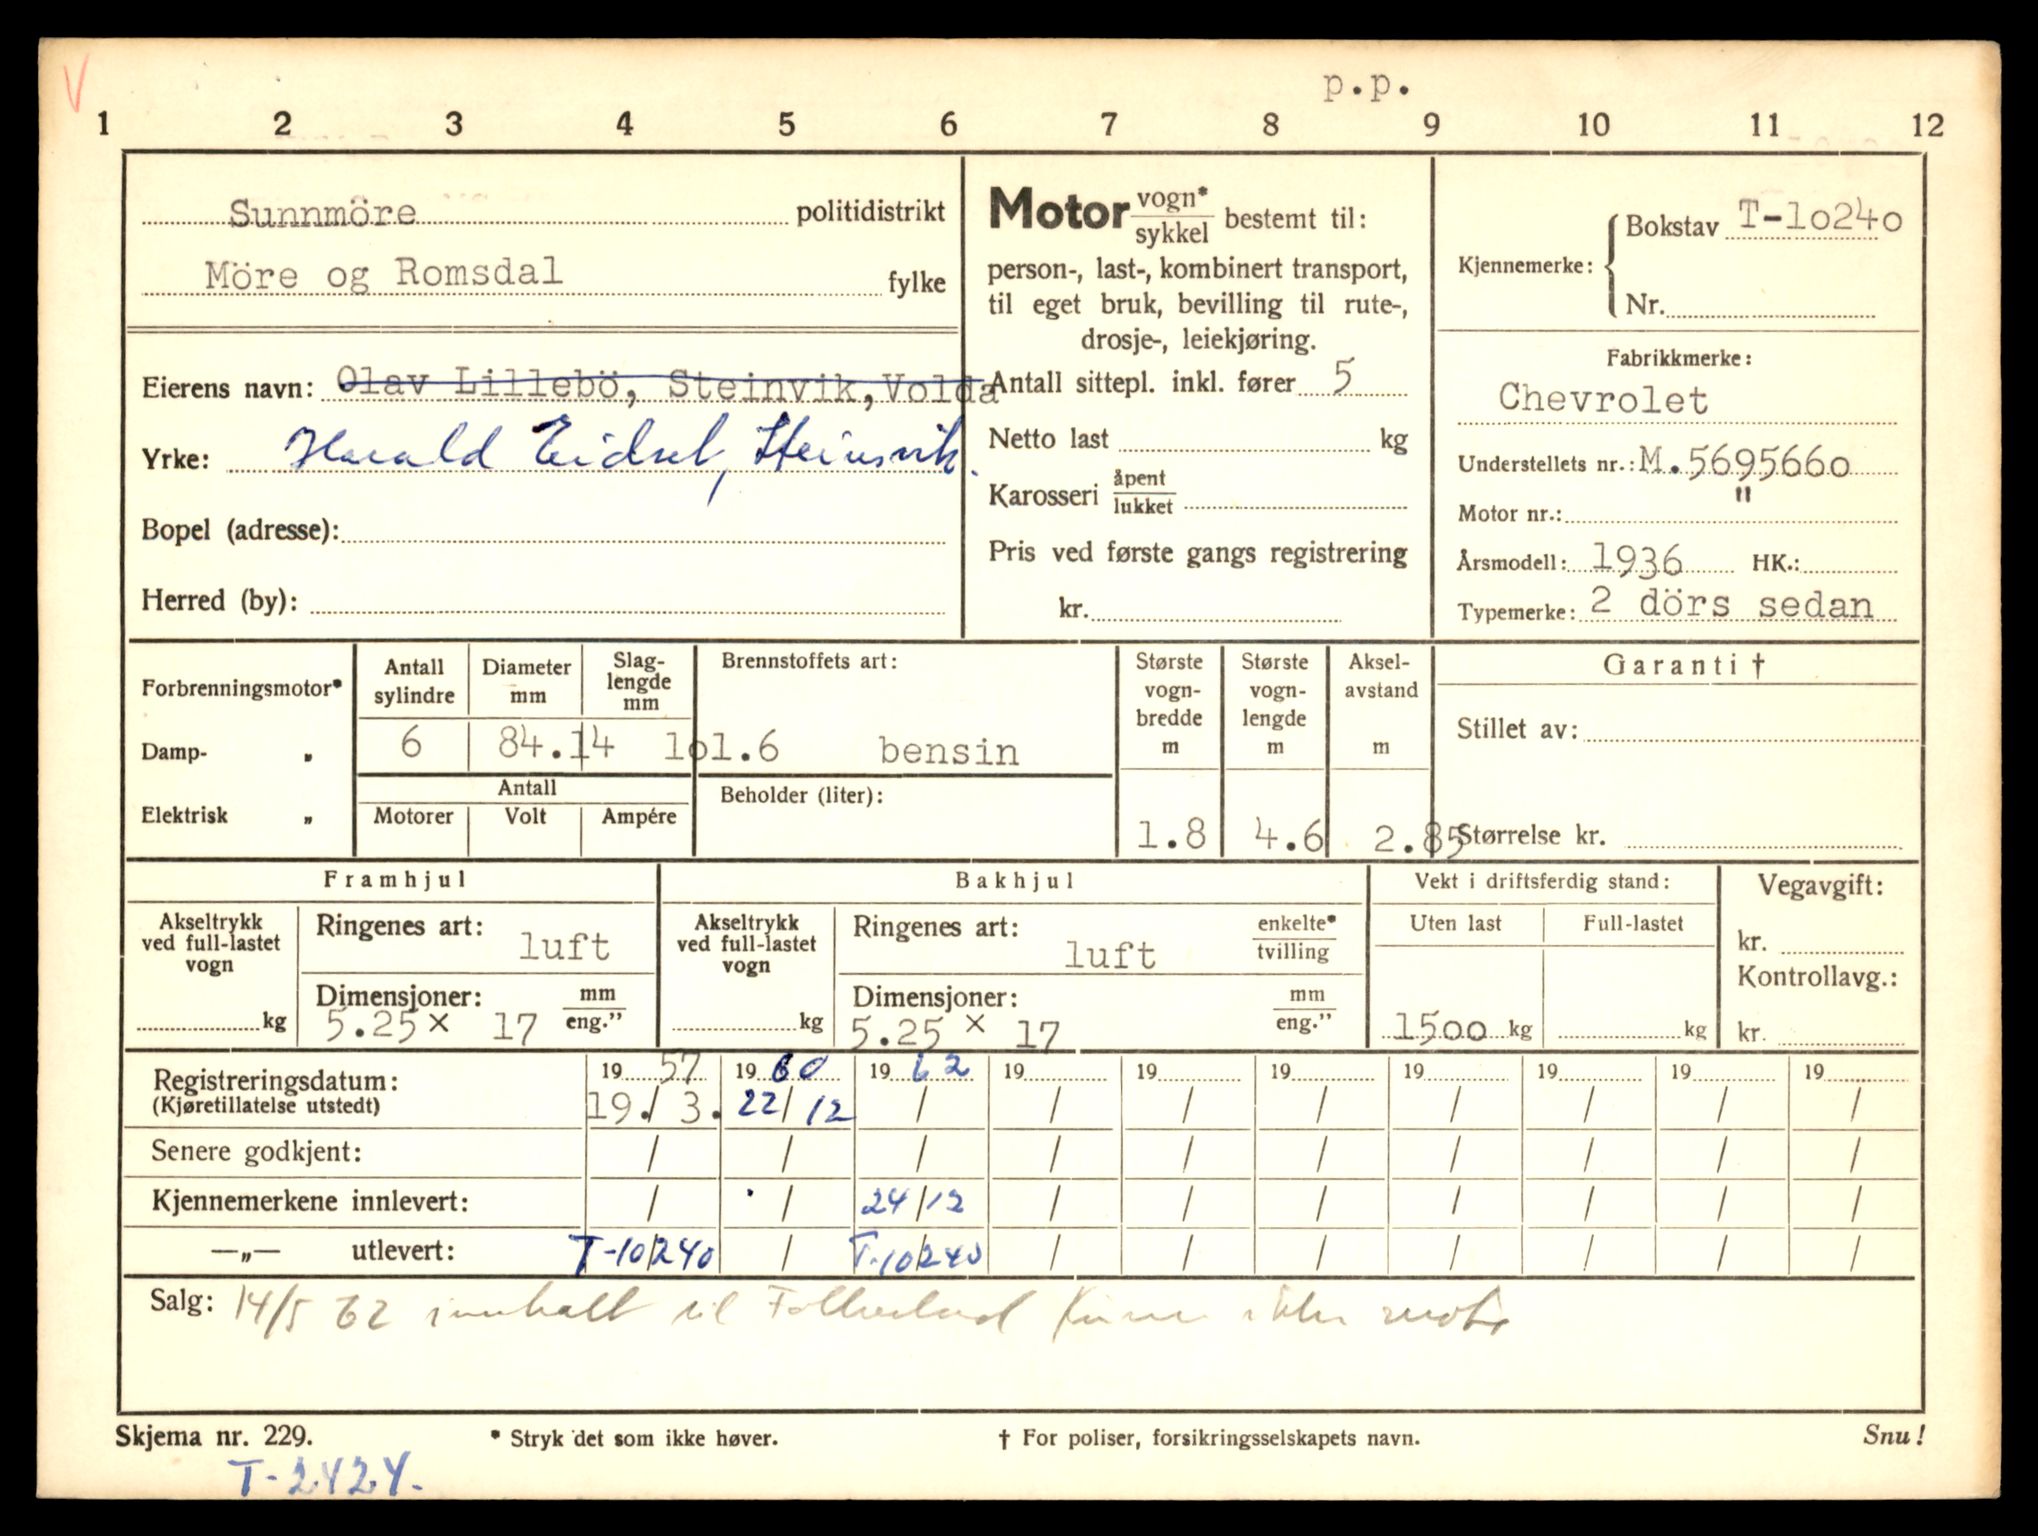 V
p.p.
1 2 3 4 5 6 7 8 9 10 11 12
Sunnmöre politidistrikt
Möre og Romsdal fylke
Eierens navn: Olav Lillebö, Steinvik, Volda
Yrke: Harald Eidset, Steinsvik.
Bopel (adresse):
Herred (by):
Motor vogn* sykkel bestemt til:
person-, last-, kombinert transport,
til eget bruk, bevilling til rute-,
drosje-, leiekjøring.
Antall sittepl. inkl. fører 5
Netto last kg
Karosseri åpent lukket
Pris ved første gangs registrering
kr.
Kjennemerke: Bokstav T-10240
Nr.
Fabrikkmerke:
Chevrolet
Understellets nr.: M.5695660
Motor nr.: "
Årsmodell: 1936 HK.:
Typemerke: 2 dörs sedan
Forbrenningsmotor*
Damp- „
Elektrisk „
Antall sylindre Diameter mm Slag-lengde mm
6 84.14 101.6
Antall
Motorer Volt Ampére
Brennstoffets art:
bensin
Beholder (liter):
Største vogn-bredde m Største vogn-lengde m Aksel-avstand m
1.8 4.6 2.85
Garanti †
Stillet av:
Størrelse kr.
Framhjul
Akseltrykk ved full-lastet vogn
kg
Ringenes art: luft
Dimensjoner: mm eng."
5.25 x 17
Bakhjul
Akseltrykk ved full-lastet vogn
kg
Ringenes art: luft enkelte* tvilling
Dimensjoner: mm eng."
5.25 x 17
Vekt i driftsferdig stand:
Uten last Full-lastet
1500 kg kg
Vegavgift:
kr.
Kontrollavg.:
kr.
Registreringsdatum: 19 57 19 60 19 62 19 19 19 19 19 19 19
(Kjøretillatelse utstedt) 19./ 3. 22/12 / / / / / / / /
Senere godkjent: / / / / / / / / / /
Kjennemerkene innlevert: / / 24/12 / / / / / / /
—„— utlevert: T-10240 / T-10240 / / / / / / /
Salg: 14/5 62 til ikke
Skjema nr. 229. * Stryk det som ikke høver. † For poliser, forsikringsselskapets navn. Snu!
T-2424.